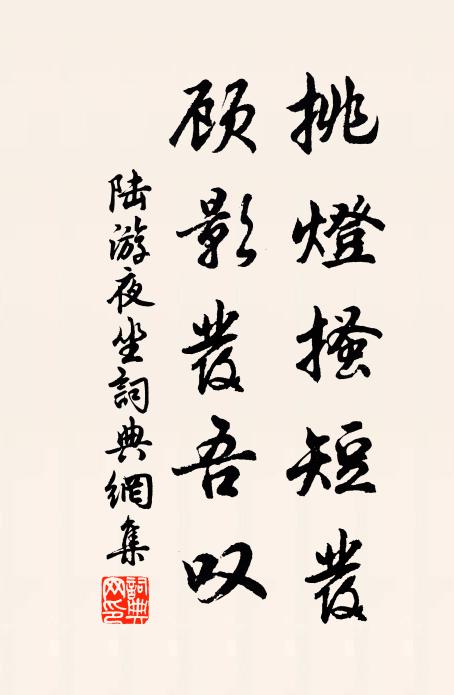 挑燈搔短發
顾影發吾叹
陆游夜坐詞典網集
詞典网印